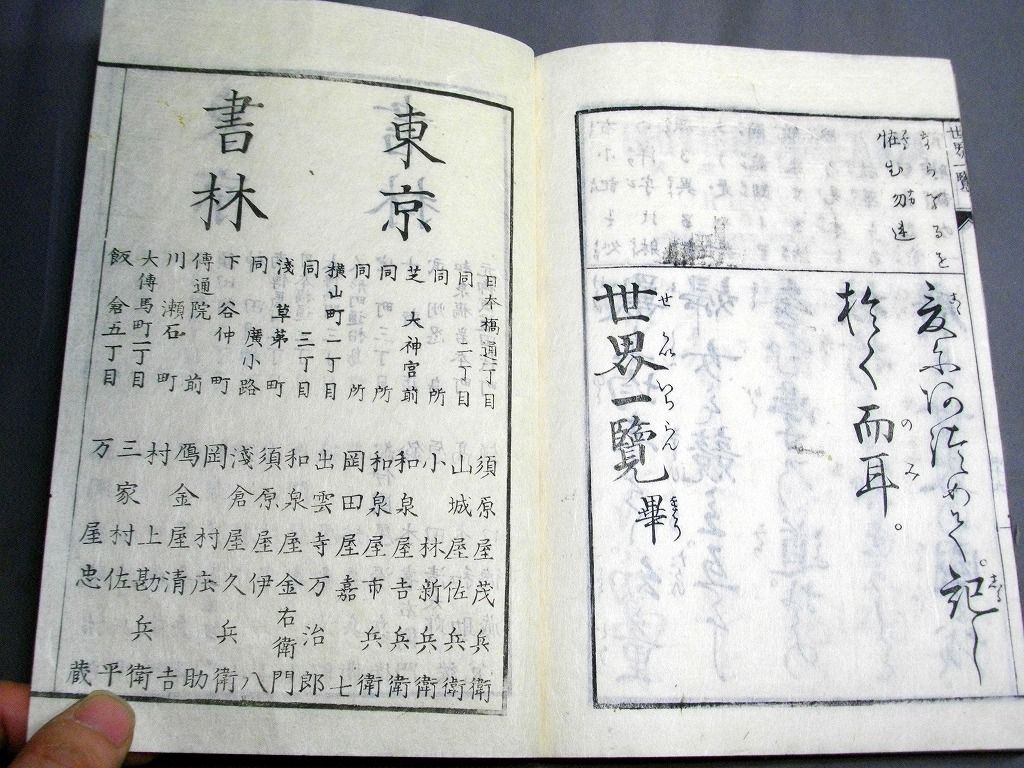 世界一覽
怪む勿連
爰尓阿徒めて。記し
於く而耳。
世界一覽 畢
東京
書林
日本橋通一丁目 須原屋茂兵衛
同二丁目 山城屋佐兵衛
同所 小林新兵衛
芝大神宮前 和泉屋吉兵衛
同所 和泉屋市兵衛
同所 岡田屋嘉七
横山町一丁目 出雲寺万治郎
同三丁目 和泉屋金右衛門
淺草茅町 須原屋伊八
同廣小路 淺倉屋久兵衛
下谷仲町 岡村庄助
傳通院前 鴈金屋清吉
川瀬石町 村上勘兵衛
大傳馬町二丁目 三家村佐平
飯倉五丁目 万屋忠蔵